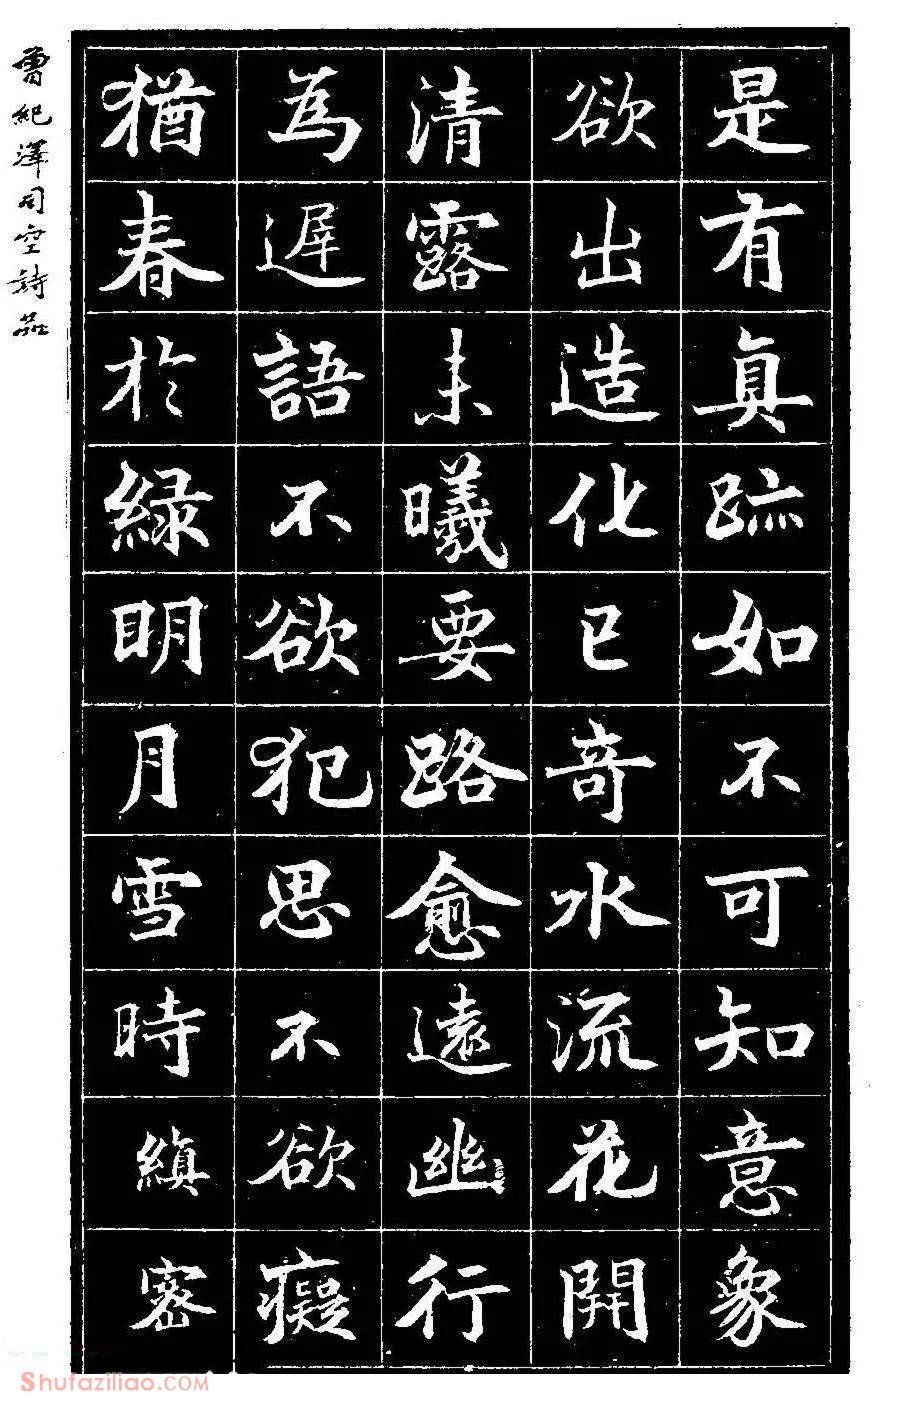 是有真跡如不可知意象
欲出造化已奇水流花開
清露未曦要路愈遠幽行
為遲語不欲犯思不欲癡
猶春於綠明月雪時縝密
曾紀澤司空詩品
Shufaziliao.COM